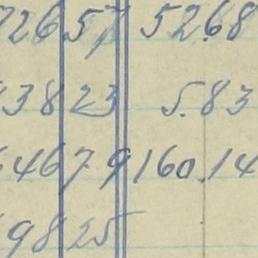 726 57 52.68
38 23 5.83
646 79 160.14
98 25